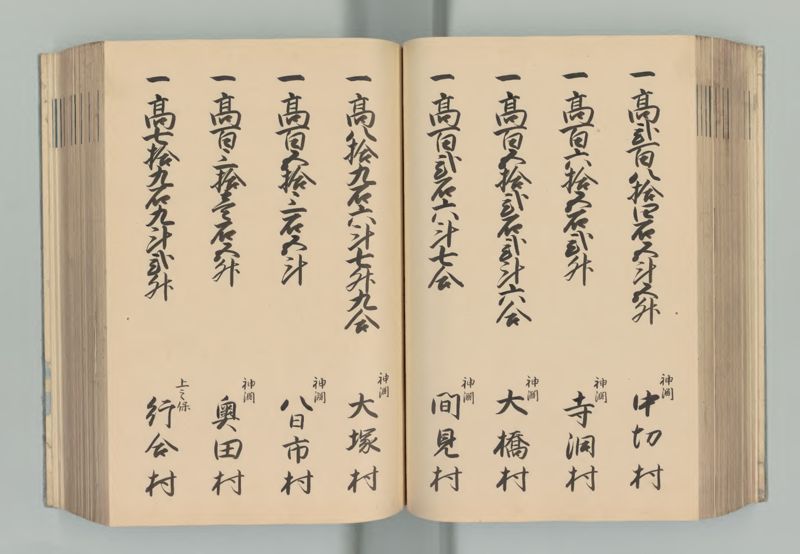 一高弐百八拾四石五斗五升
神渕
中切村
一高百六拾五石弐升
神渕
寺洞村
一高百五拾弐石弐斗六合
神渕
大橋村
一高百弐石六斗七合
神渕
間見村
一高八拾九石六斗七升九合
神渕
大塚村
一高百五拾三石五斗
神渕
八日市村
一高百三拾壱石五升
神渕
奥田村
一高七拾九石九斗弐升
上之保
行合村